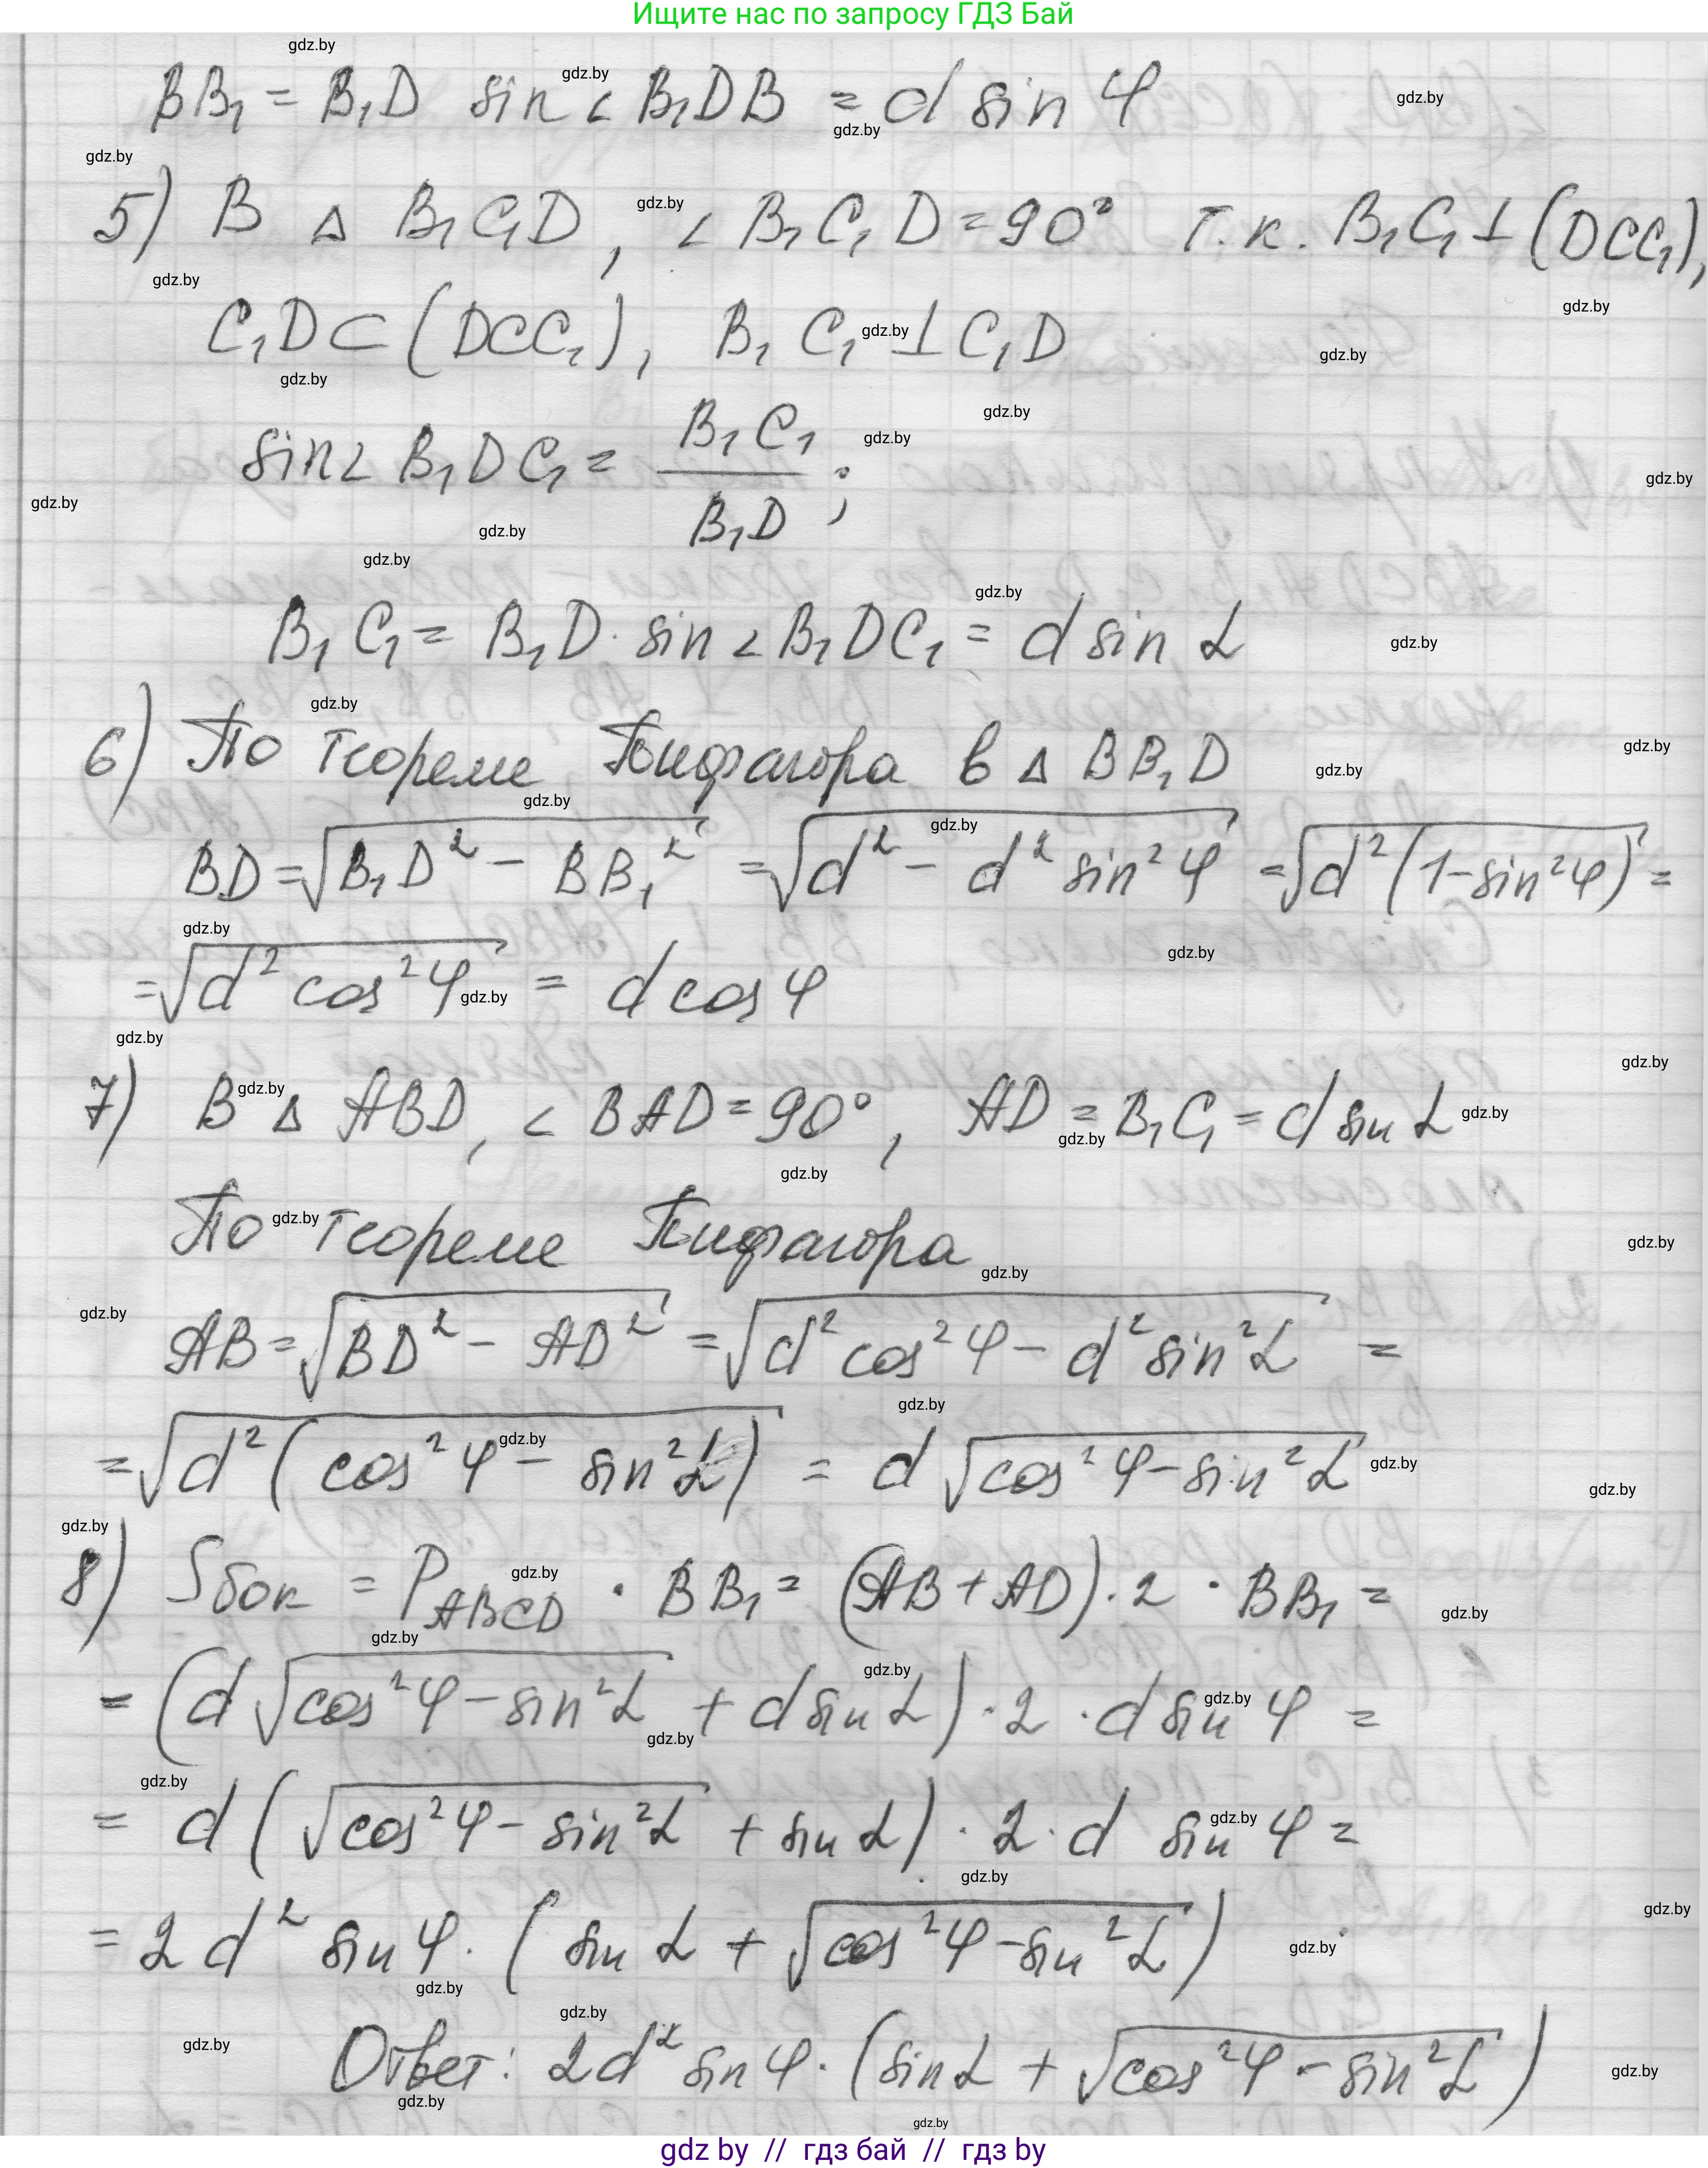 Ищите нас по запросу ГДЗ Бай
BB₁ = B₁D sin ∠ B₁DB = d sin φ
5) В Δ B₁C₁D, ∠ B₁C₁D = 90° т.к. B₁C₁ ⊥ (DCC₁),
C₁D ⊂ (DCC₁), B₁C₁ ⊥ C₁D
sin ∠ B₁DC₁ = B₁C₁ / B₁D ;
B₁C₁ = B₁D · sin ∠ B₁DC₁ = d sin α
6) По теореме Пифагора в Δ BB₁D
BD = √(B₁D² − BB₁²) = √(d² − d² sin² φ) = √(d² (1 − sin² φ)) =
= √(d² cos² φ) = d cos φ
7) В Δ ABD, ∠ BAD = 90°, AD = B₁C₁ = d sin α
По теореме Пифагора
AB = √(BD² − AD²) = √(d² cos² φ − d² sin² α) =
= √(d² (cos² φ − sin² α)) = d √(cos² φ − sin² α)
8) Sбок = P_ABCD · BB₁ = (AB + AD) · 2 · BB₁ =
= (d √(cos² φ − sin² α) + d sin α) · 2 · d sin φ =
= d (√(cos² φ − sin² α) + sin α) · 2 · d sin φ =
= 2 d² sin φ · (sin α + √(cos² φ − sin² α))
Ответ: 2d² sin φ · (sin α + √(cos² φ − sin² α))
gdz by // гдз бай // гдз by